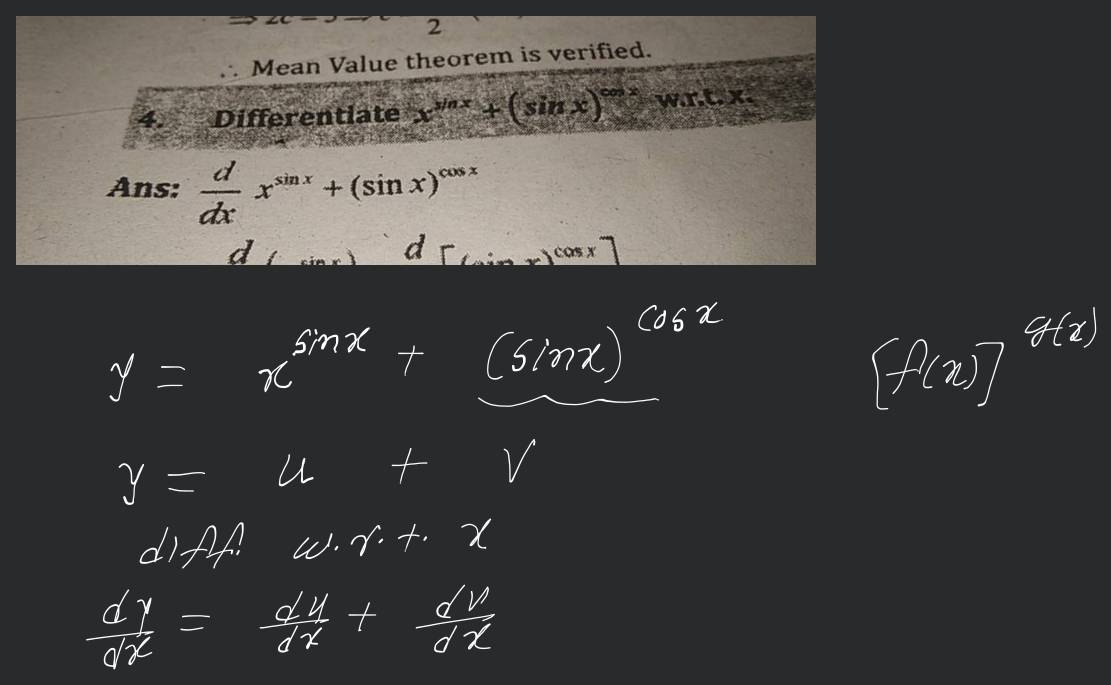 2
∴ Mean Value theorem is verified.
4. Differentiate x^sin x + (sin x)^cos x w.r.t. x.
Ans: d/dx x^sin x + (sin x)^cos x
d ( sin x ) d [(sin x)^cos x]
y = x^sinx + (sinx)^cos x [f(x)]^g(x)
y = u + v
diff. w.r.t. x
dy/dx = du/dx + dv/dx